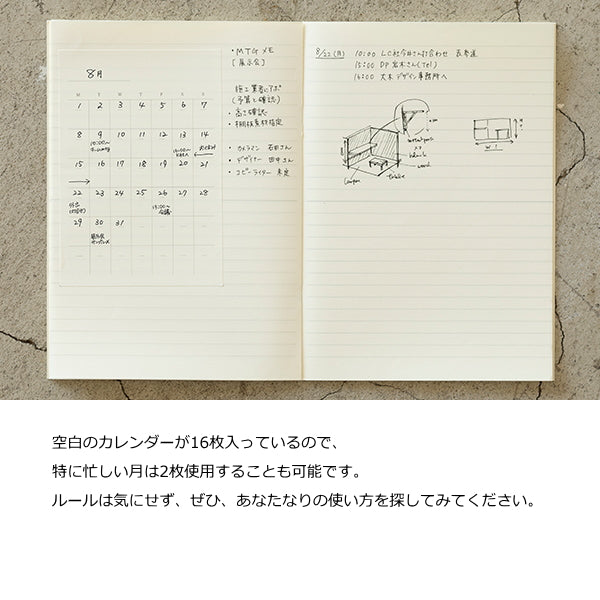 8月
M T W T F S S
1 2 3 4 5 6 7
8 9 10 11 12 13 14
15 16 17 18 19 20 21
22 23 24 25 26 27 28
13:00〜
会議
29 30 31
・MTGメモ
[展示会]
施工業者にTEL
(予算と確認)
・高さ確認
・カメラマン 石田さん
・デザイナー 田中さん
・コピーライター 未定
8/22(月) 10:00 LC社今井さん打合わせ 表参道
15:00 DP 宮木さん(Tel)
16:00 大木デザイン事務所へ
table
W
空白のカレンダーが16枚入っているので、
特に忙しい月は2枚使用することも可能です。
ルールは気にせず、ぜひ、あなたなりの使い方を探してみてください。